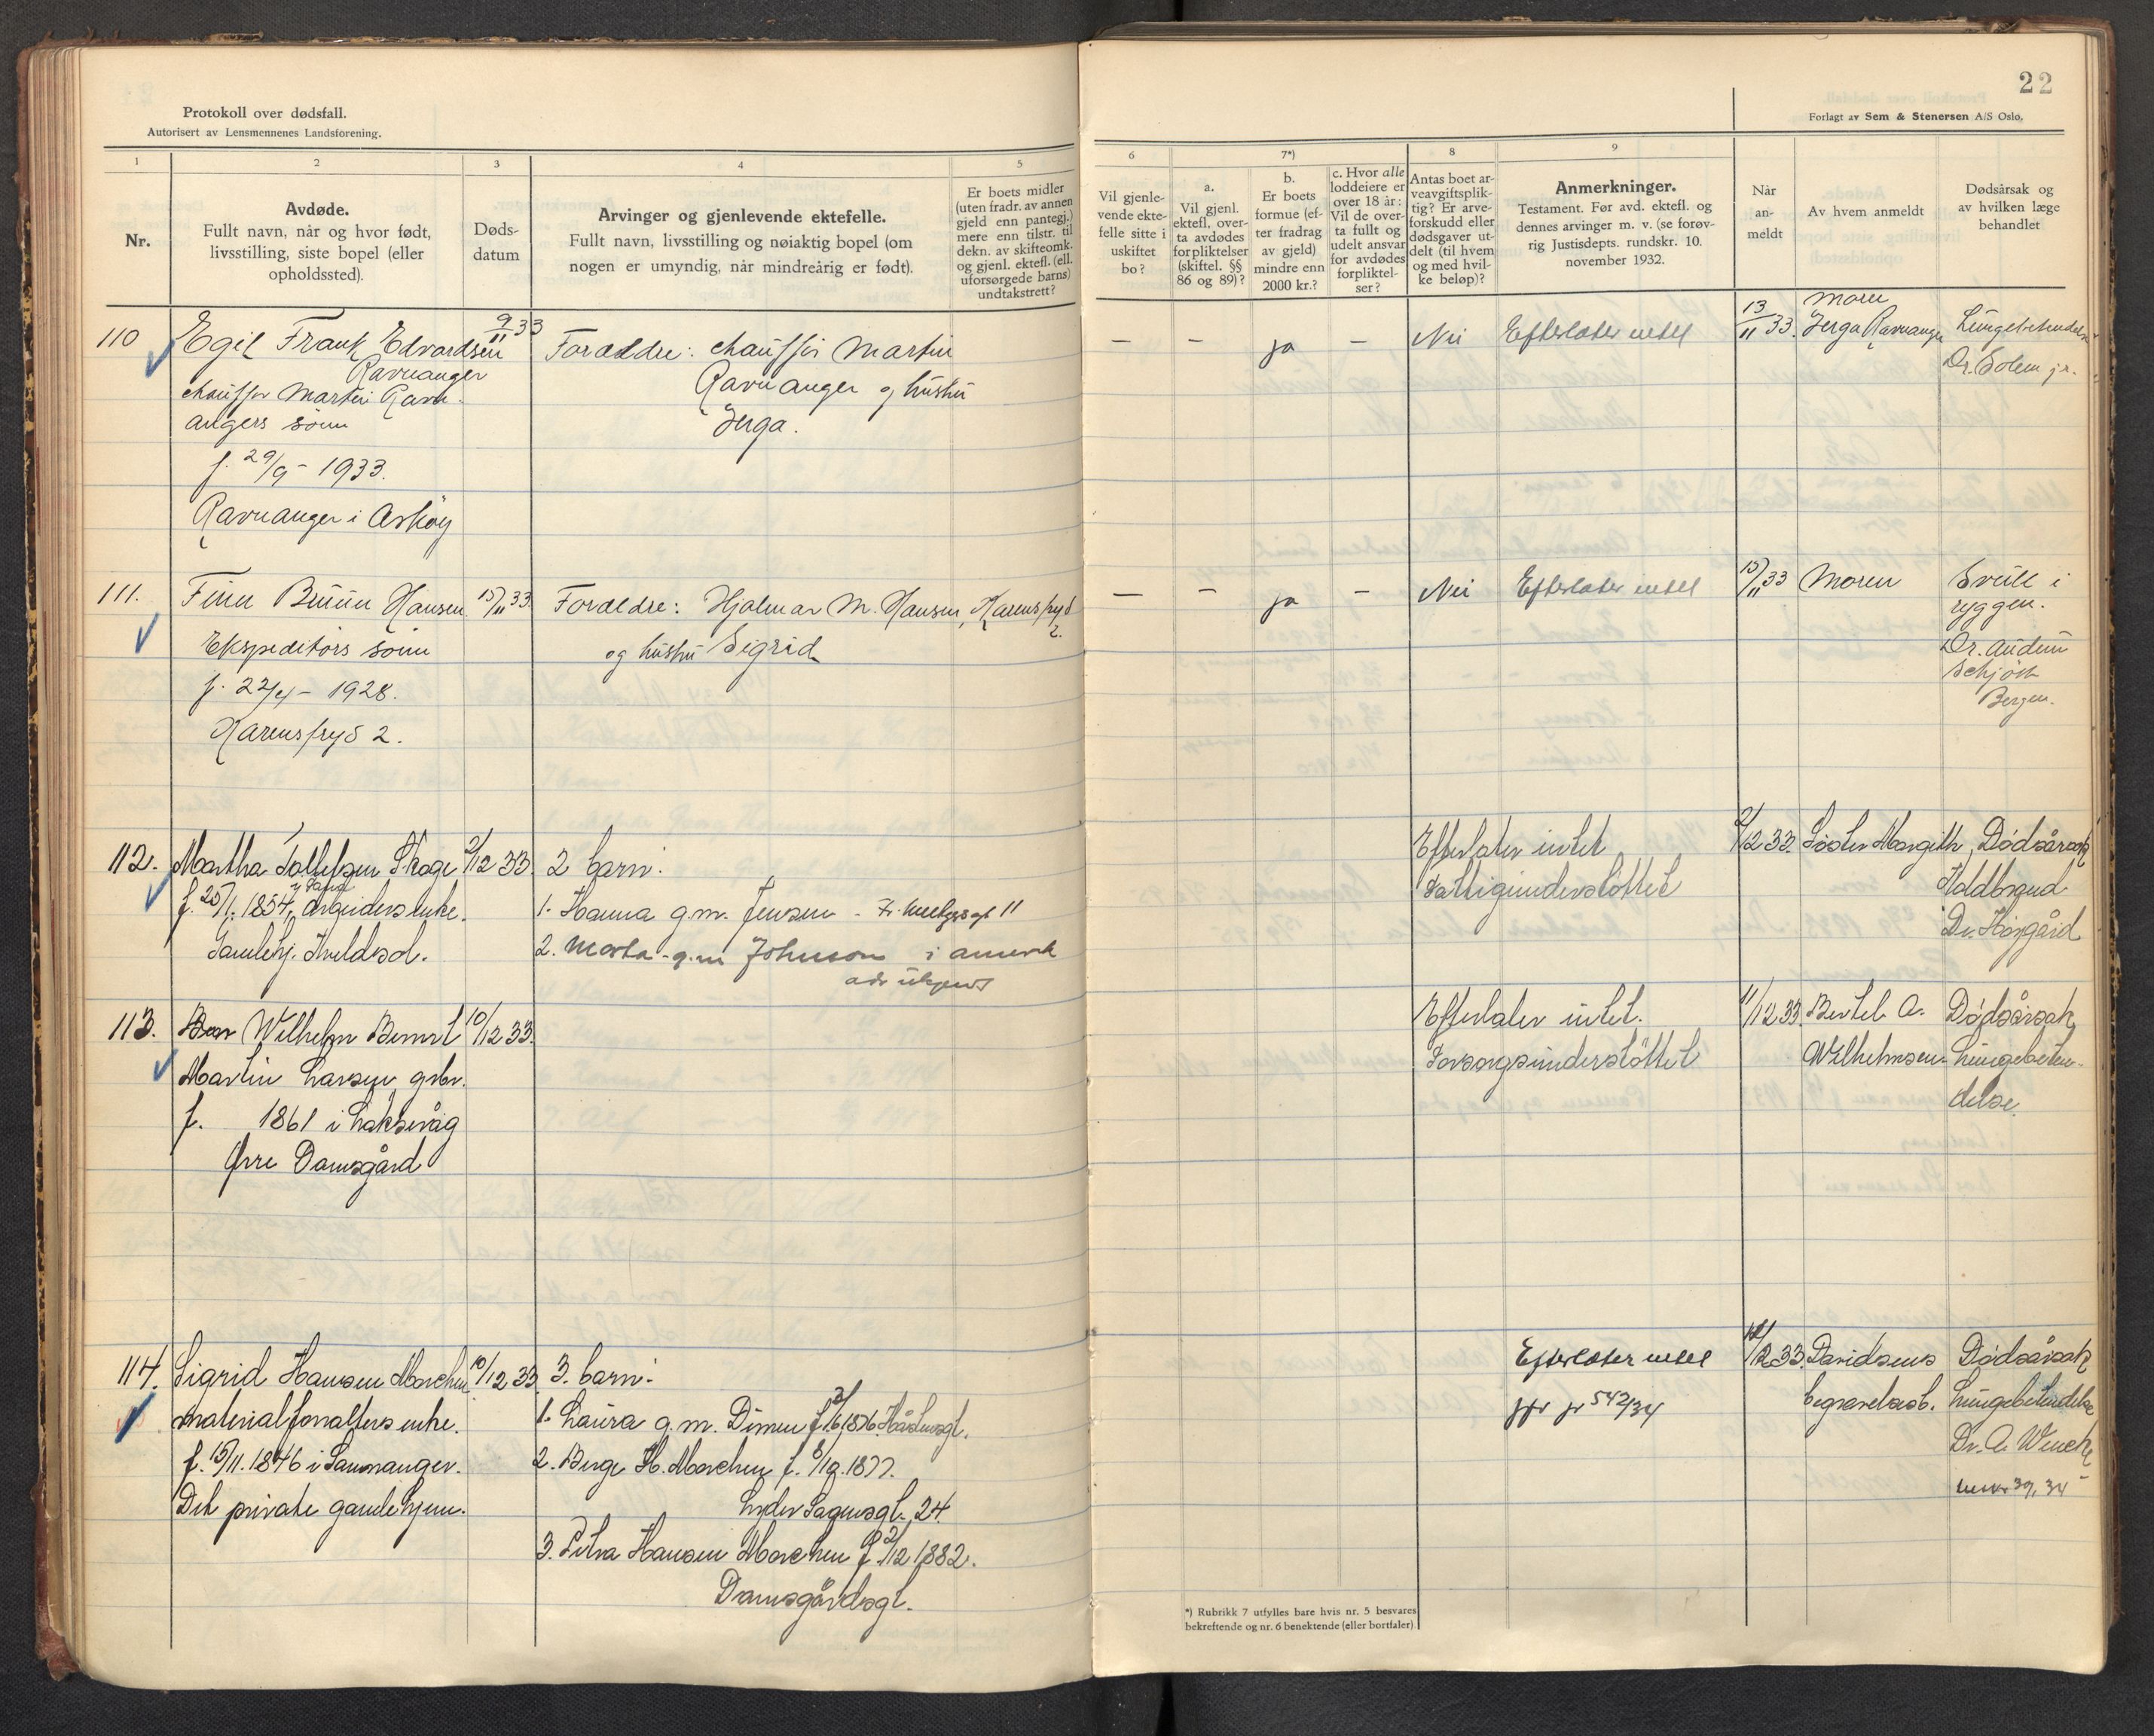 Protokoll over dødsfall.
Autorisert av Lensmennenes Landsforening.
22
Forlagt av Sem & Stenersen A/S Oslo.
1
2
3
4
5
6
7*)
8
9
Nr.
Avdøde.
Fullt navn, når og hvor født,
livsstilling, siste bopel (eller
opholdssted).
Døds-
datum
Arvinger og gjenlevende ektefelle.
Fullt navn, livsstilling og nøiaktig bopel (om
nogen er umyndig, når mindreårig er født).
Er boets midler
(uten fradr. av annen
gjeld enn pantegj.)
mere enn tilstr. til
dekn. av skifteomk.
og gjenl. ektefl. (ell.
uforsørgede barns)
undtakstrett?
Vil gjenle-
vende ekte-
felle sitte i
uskiftet
bo?
a.
Vil gjenl.
ektefl. over-
ta avdødes
forpliktelser
(skiftel. §§
86 og 89)?
b.
Er boets
formue (ef-
ter fradrag
av gjeld)
mindre enn
2000 kr.?
c. Hvor alle
loddeiere er
over 18 år:
Vil de over-
ta fullt og
udelt ansvar
for avdødes
forpliktel-
ser?
Antas boet ar-
veavgiftsplik-
tig? Er arve-
forskudd eller
dødsgaver ut-
delt (til hvem
og med hvil-
ke beløp)?
Anmerkninger.
Testament. Før avd. ektefl. og
dennes arvinger m. v. (se forøv-
rig Justisdepts. rundskr. 10.
november 1932.
Når
an-
meldt
Av hvem anmeldt
Dødsårsak og
av hvilken læge
behandlet
110
Egil Frank Edvardsen
Ravnanger
chauffør Martin Ravn-
angers sønn
f. 29/9 - 1933.
Ravnanger i Askøy
9/11 33
Foreldre: chauffør Martin
Ravnanger og hustru
Jerga.
— — ja — Nei Efterlater intet
13/11 33.
Moren
Jerga Ravnanger
Lungebetendelse
Dr. Solem jr.
111.
Finn Bruun Hansen
Ekspeditørs sønn
f. 22/4 - 1928.
Karensfryd 2.
15/11 33.
Foreldre: Hjalmar M. Hansen, Karensfryd
2.
og hustru Sigrid
— — ja — Nei Efterlater intet
15/11 33
Moren
Svull i
ryggen.
Dr. Audun
Schjøth
Bergen.
112.
Martha Tollefsen Skage
f. 25/1. 1854, arbeiders enke.
Gamlehj. Kveldsol.
2/12 33
2 barn:
1. Hanna g.m. Jensen -
2. Marta - g.m Johnson i amerik
adr ukjent
Efterlater intet
Fattigunderstøttet
2/12 33.
Søster Margith
Dødsårsak
Koldbrand
Dr. Horgård
113.
Wilhelm Berner
Martin Larsen, grbr.
f. 1861 i Laksevåg
Øvre Damsgård
10/12 33.
Efterlater intet.
Forsorgsunderstøttet
11/12 33.
Bertel A.
Wilhelmsen
Dødsårsak
Lungebeten-
delse.
114.
Sigrid Hansen Mowchen
materialforvalters enke.
f. 15/11. 1846 i Samnanger.
Det private gamlehjem.
10/12 33.
3. barn:
1. Laura g.m. Dimen f. 2/6 1876.
2. Berge H. Mowchen f. 8/10. 1877.
Lyder Sagensgt. 24.
3. Petra Hansen Mowchen f. 2/12 1882.
Damsgårdsgt.
Efterlater intet
jfr jr 542/34
12/12 33.
Davidsens
begravelsesb.
Dødsårsak
Lungebetendelse
Dr. A. Wencke
*) Rubrikk 7 utfylles bare hvis nr. 5 besvares
bekreftende og nr. 6 benektende (eller bortfaler).